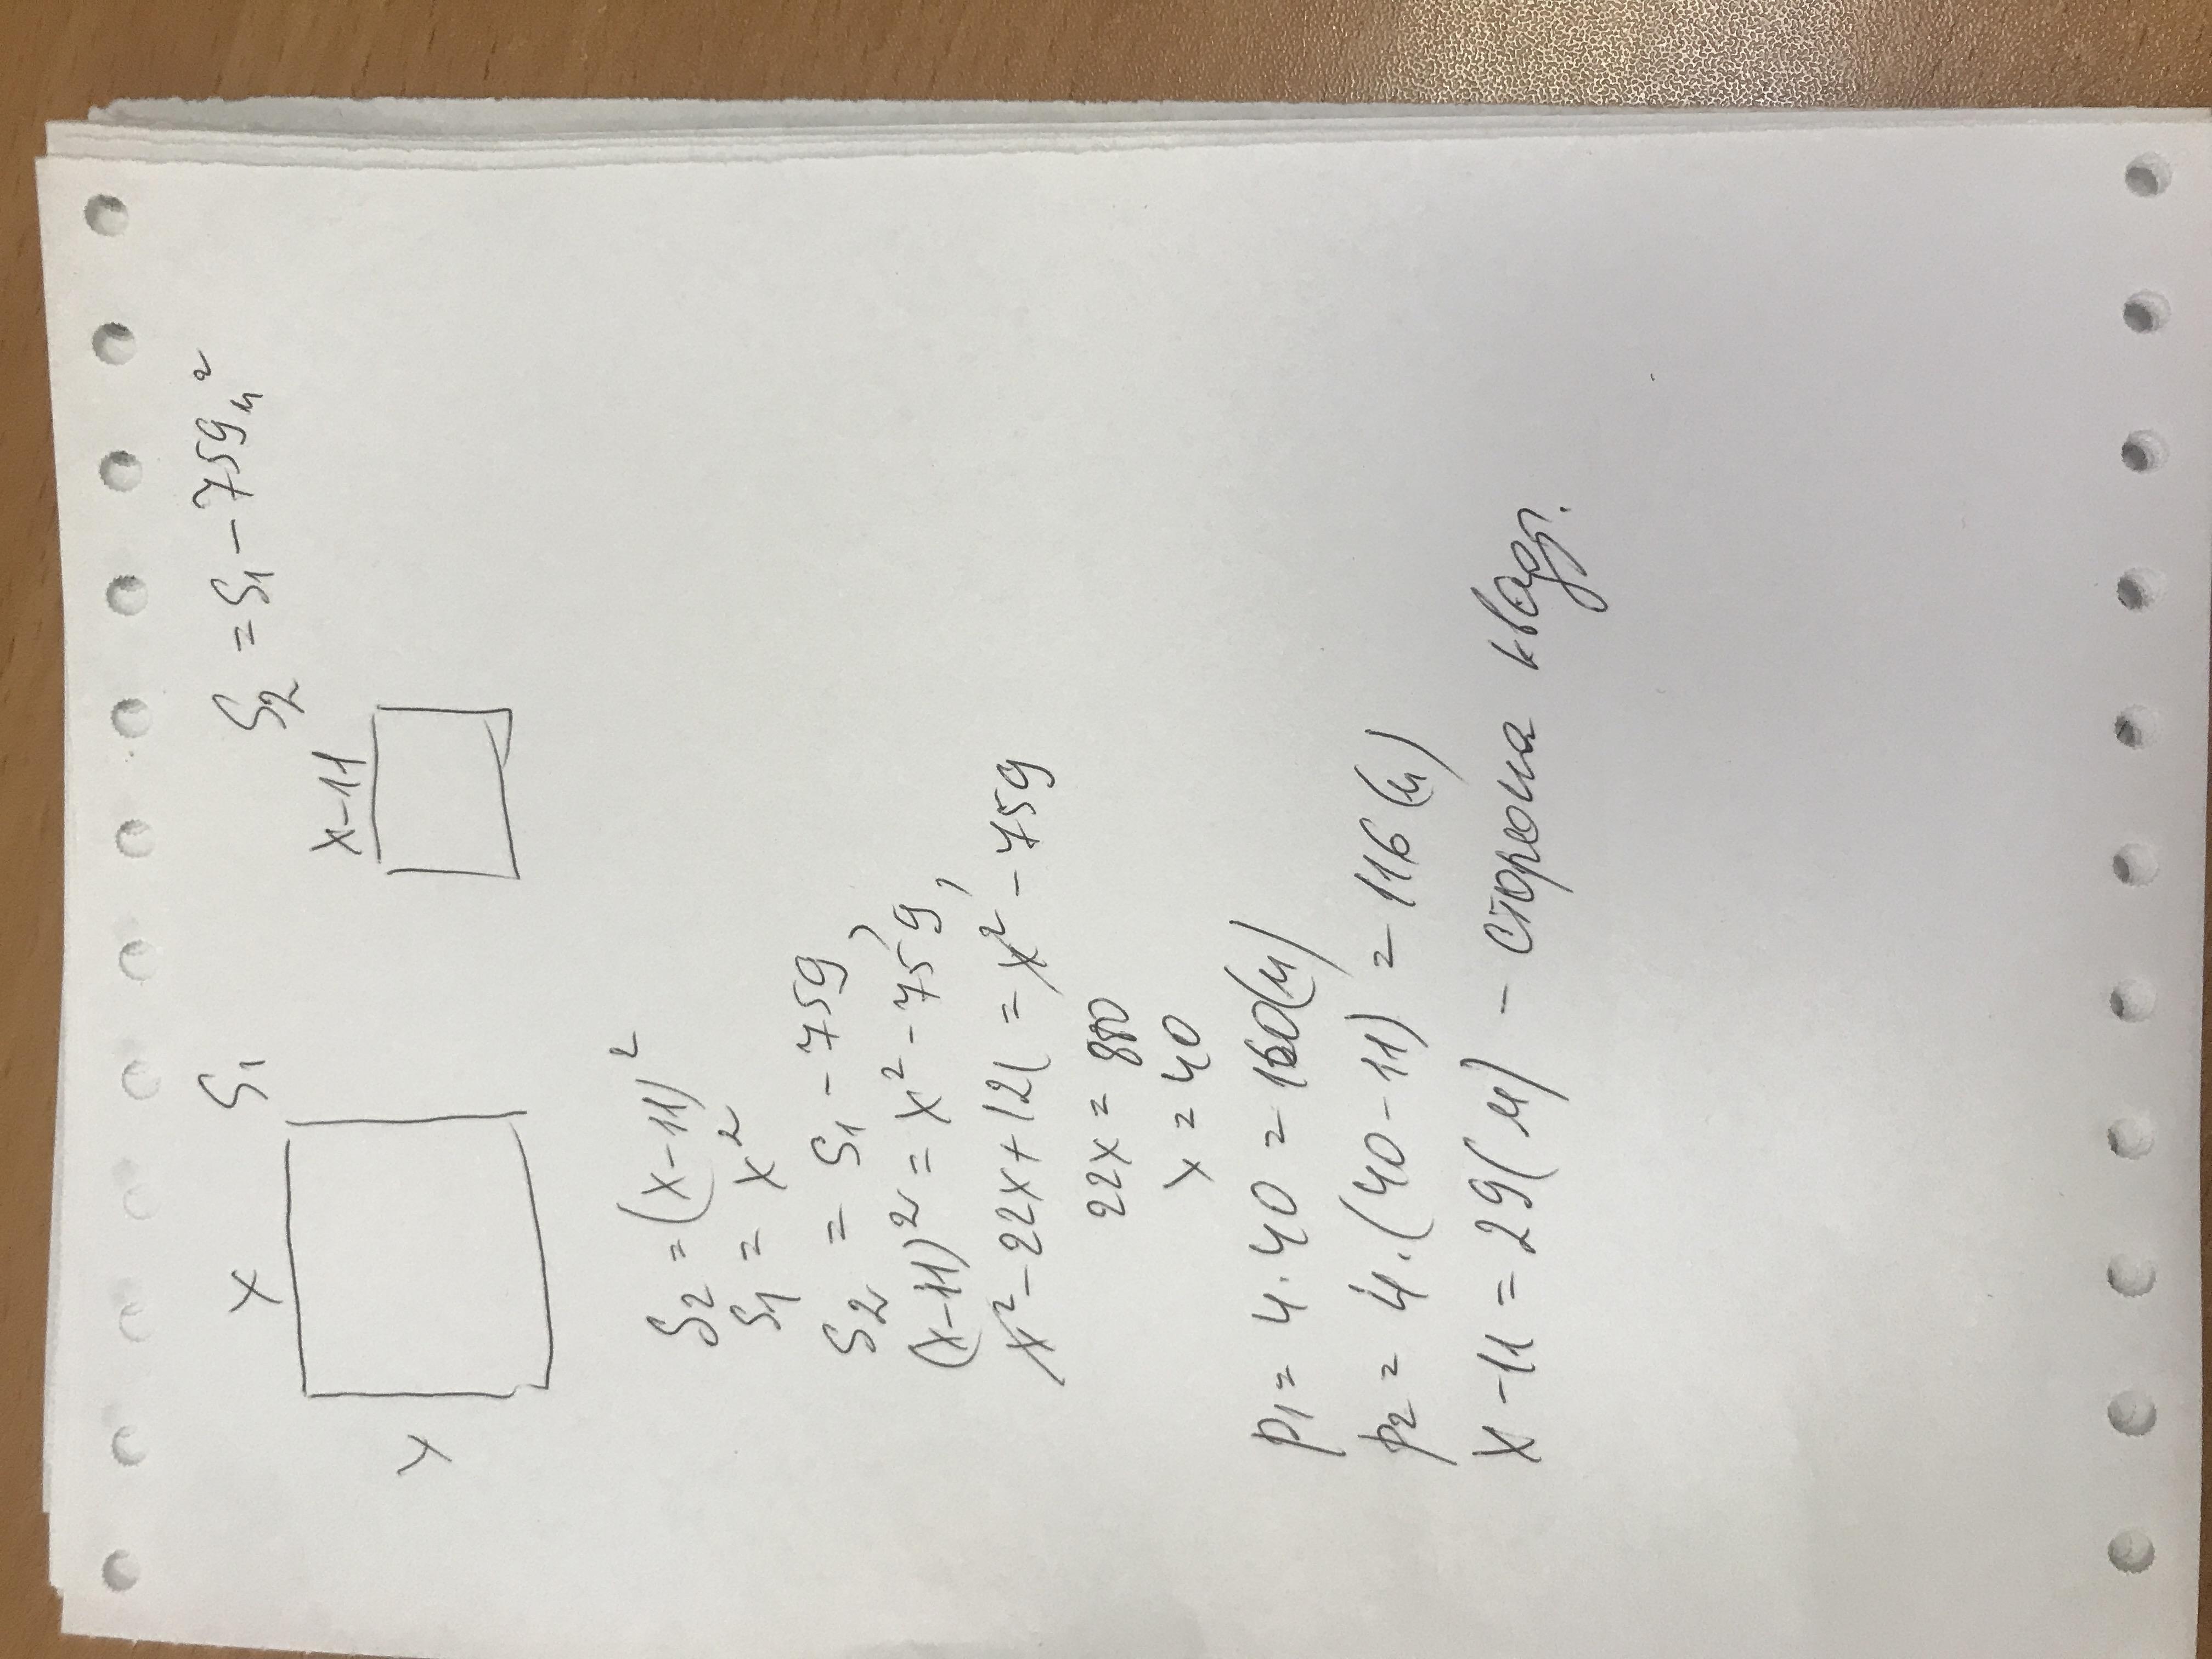 x S₁ x-11 S₂ = S₁ - 759 м²
x
S₂ = (x-11)²
S₁ = x²
S₂ = S₁ - 759,
(x-11)² = x² - 759,
x² - 22x + 121 = x² - 759
22x = 880
x = 40
P₁ = 4·40 = 160(м)
P₂ = 4·(40-11) = 116(м)
x-11 = 29(м) - сторона квадр.